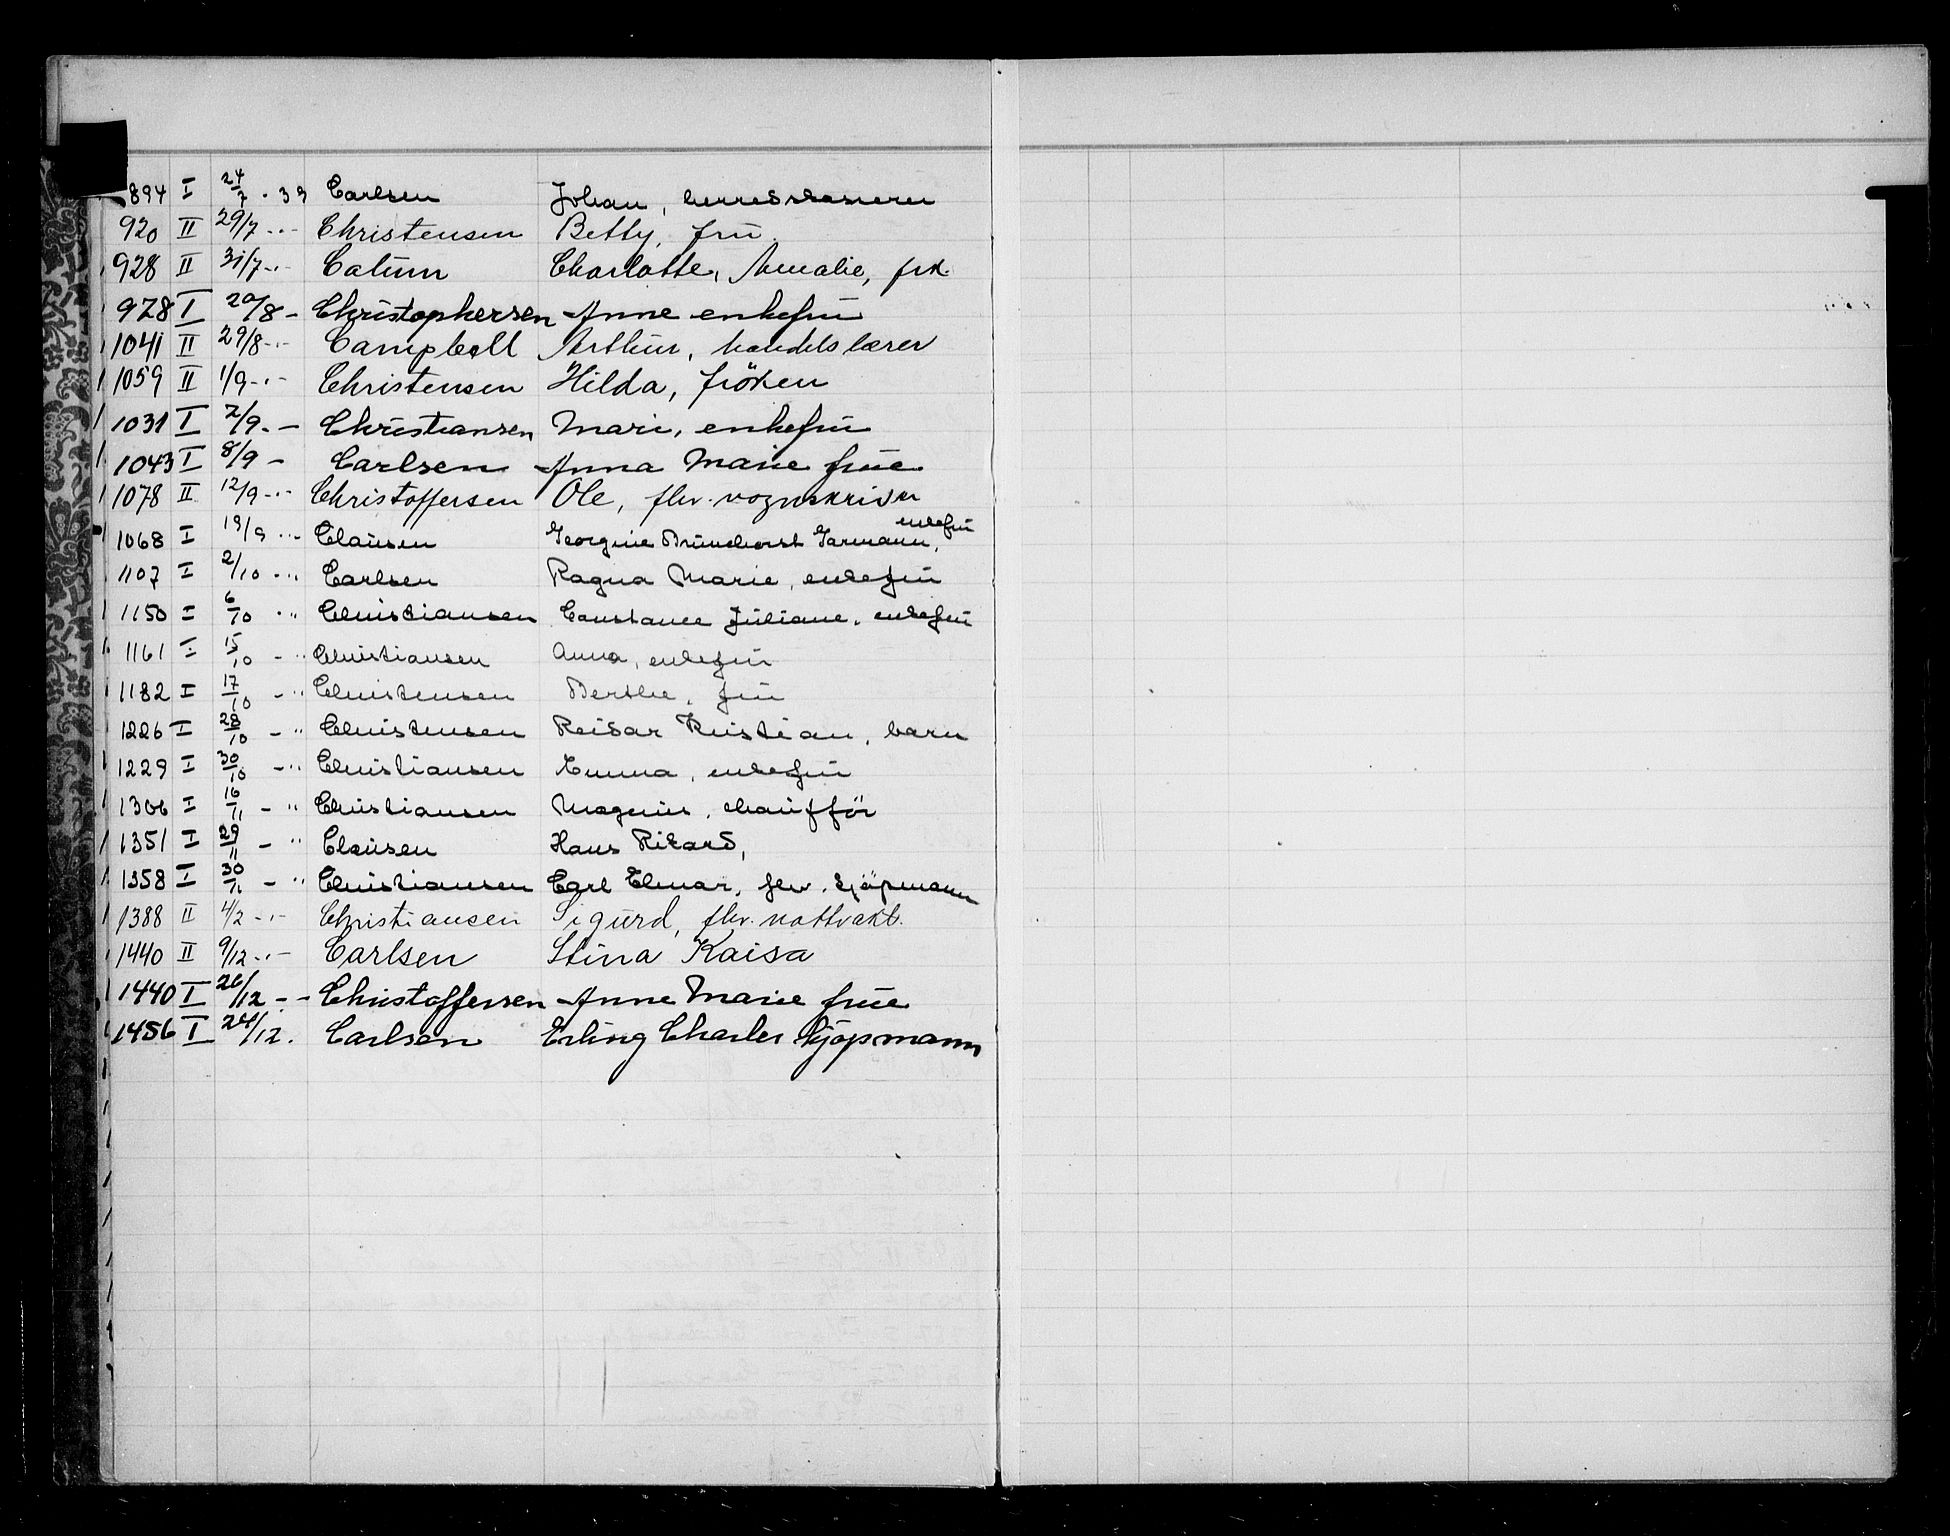 894 I 24/7 . 39 Carlsen Johan, herredskasserer
920 II 29/7 -"- Christensen Betty, fru
928 II 31/7 -"- Catum Charlotte, Amalie, frk.
978 I 20/8 - Christophersen Anne enkefru
1041 II 29/8 -"- Campbell Arthur, handelslærer
1059 II 1/9 -"- Christensen Hilda, fröken
1031 I 2/9 . - Christiansen Mari, enkefru
1043 I 8/9 - Carlsen Anna Marie frue
1078 II 12/9 -"- Christoffersen Ole, fhv. vognskriver
1068 I 19/9 -"- Clausen Georgine Brunchorst Garmann, enkefru
1107 I 2/10 -" Carlsen Ragna Marie, enkefru
1150 I 6/10 " Christiansen Constance Juliane, enkefru
1161 I 15/10 - " Christiansen Anna, enkefru
1182 I 17/10 - " Christensen Berthe, fru
1226 I 28/10 - " Christensen Reidar Kristian, barn
1229 I 30/10 - " Christiansen Emma, enkefru
1306 I 16/11 - " Christiansen Magnus, chaufför
1351 I 29/11 - " Clausen Hans Rikard,
1358 I 30/11 - " Christiansen Carl Elmar, fhv. sjöpmann
1388 II 4/2 -"- Christiansen Sigurd, fhv. nattvakt.
1440 II 9/12 -"- Carlsen Stina Kaisa
1440 I 26/12 - - Christoffersen Anne Marie frue
1456 I 24/12. Carlsen Erling Charles sjöpmann